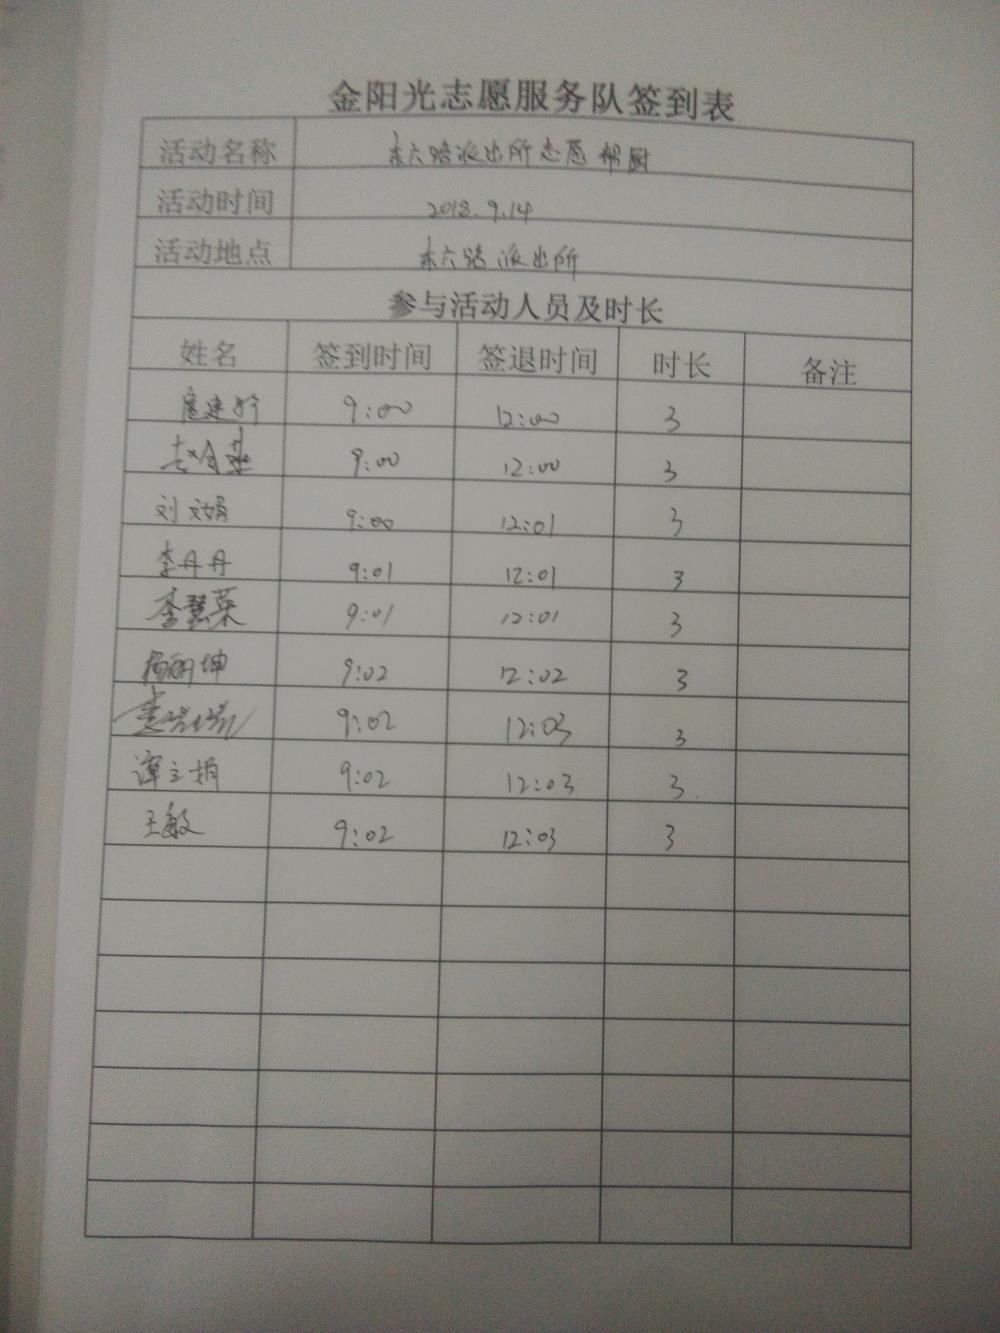 金阳光志愿服务队签到表
活动名称 东六路派出所志愿帮厨
活动时间 2018.9.14
活动地点 东六路派出所
参与活动人员及时长
姓名 签到时间 签退时间 时长 备注
9:00 12:00 3
9:00 12:00 3
刘文娟 9:00 12:01 3
李丹丹 9:01 12:01 3
李慧荣 9:01 12:01 3
杨丽坤 9:02 12:02 3
9:02 12:03 3
谭立娟 9:02 12:03 3
王敏 9:02 12:03 3